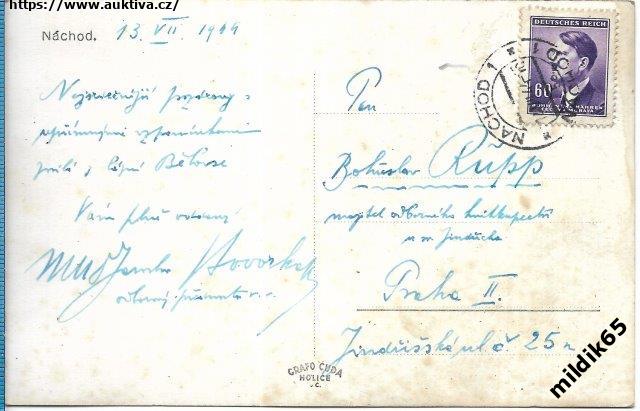 https://www.auktiva.cz/
Náchod. 13 VII. 1944
Nejsrdečnější pozdravy s
upřímnými vzpomínkami
posílá z lázní Běloves
Vám plně oddaný
MUDr
odborný
Pan
Bohuslav Rupp
majitel odborného knihkupectví
u sv. Jindřicha
Praha II.
Jindřišská ul. č 25
DEUTSCHES REICH
60
BÖHMEN UND MÄHREN
ČECHY A MORAVA
NÁCHOD 1
GRAFO ČUDA
HOLICE
mildik65